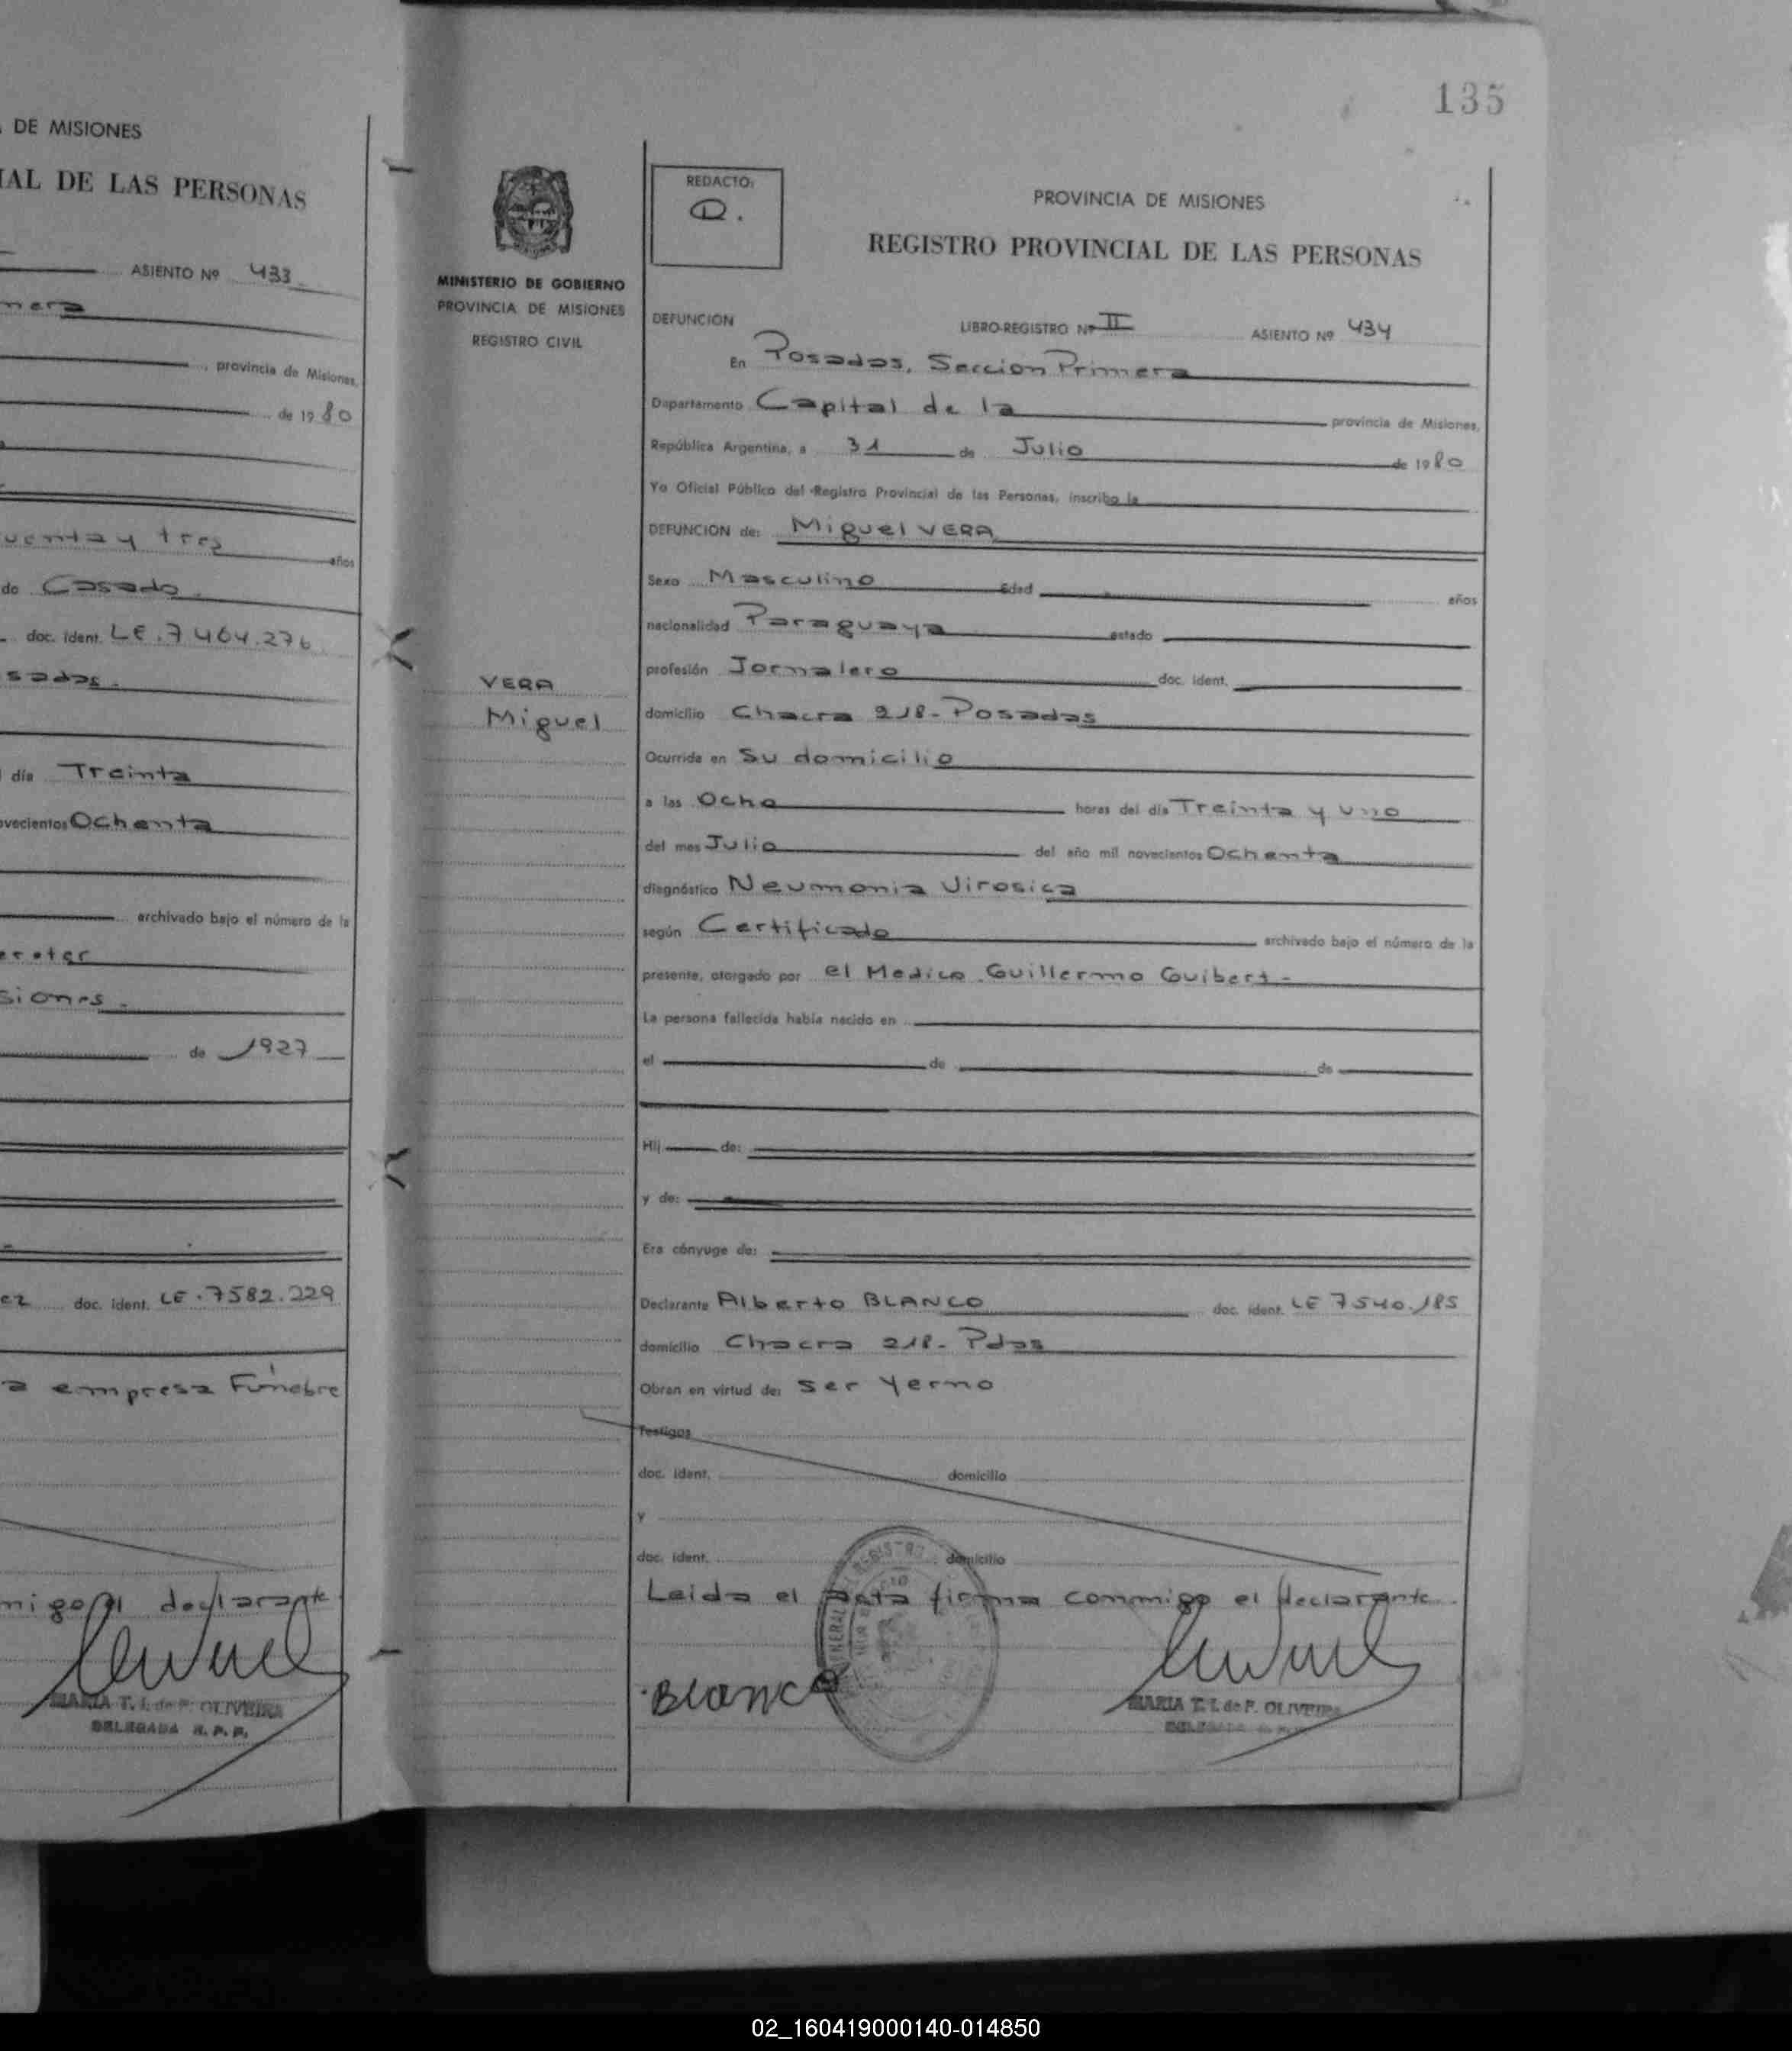 DE MISIONES
IAL DE LAS PERSONAS
ASIENTO Nº 433
mera
provincia de Misiones,
de 1980
uenta y tres años
do Casado.
doc. ident. LE.7464.276
sadas.
día Treinta
ovecientos Ochenta
archivado bajo el número de la
siones.
de 1927
ez doc. ident. LE.7582.229
a empresa Fúnebre
migo el declarante
MARIA T. I. de P. OLIVEIRA
DELEGADA R. P. P.
135
MINISTERIO DE GOBIERNO
PROVINCIA DE MISIONES
REGISTRO CIVIL
VERA
Miguel
REDACTO:
PROVINCIA DE MISIONES
REGISTRO PROVINCIAL DE LAS PERSONAS
DEFUNCION LIBRO-REGISTRO Nº II ASIENTO Nº 434
En Posadas, Seccion Primera
Departamento Capital de la provincia de Misiones,
República Argentina, a 31 de Julio de 1980
Yo Oficial Público del Registro Provincial de las Personas, inscribo la
DEFUNCION de: Miguel VERA
Sexo Masculino Edad años
nacionalidad Paraguaya estado
profesión Jornalero doc. ident.
domicilio Chacra 218-Posadas
Ocurrida en Su domicilio
a las Ocho horas del día Treinta y uno
del mes Julio del año mil novecientos Ochenta
diagnóstico Neumonia Virosica
según Certificado archivado bajo el número de la
presente, otorgado por el Medico Guillermo Guibert-
La persona fallecida había nacido en
el de de
Hij de:
y de:
Era cónyuge de:
Declarante Alberto BLANCO doc. ident. LE 7540.185
domicilio Chacra 218-Pdas
Obran en virtud de: Ser Yerno
Testigos
doc. ident. domicilio
y
doc. ident. domicilio
Leida el acta firma conmigo el declarante.
Blanco
MARIA T. I. de P. OLIVEIRA
DELEGADA R. P. P.
02_160419000140-014850